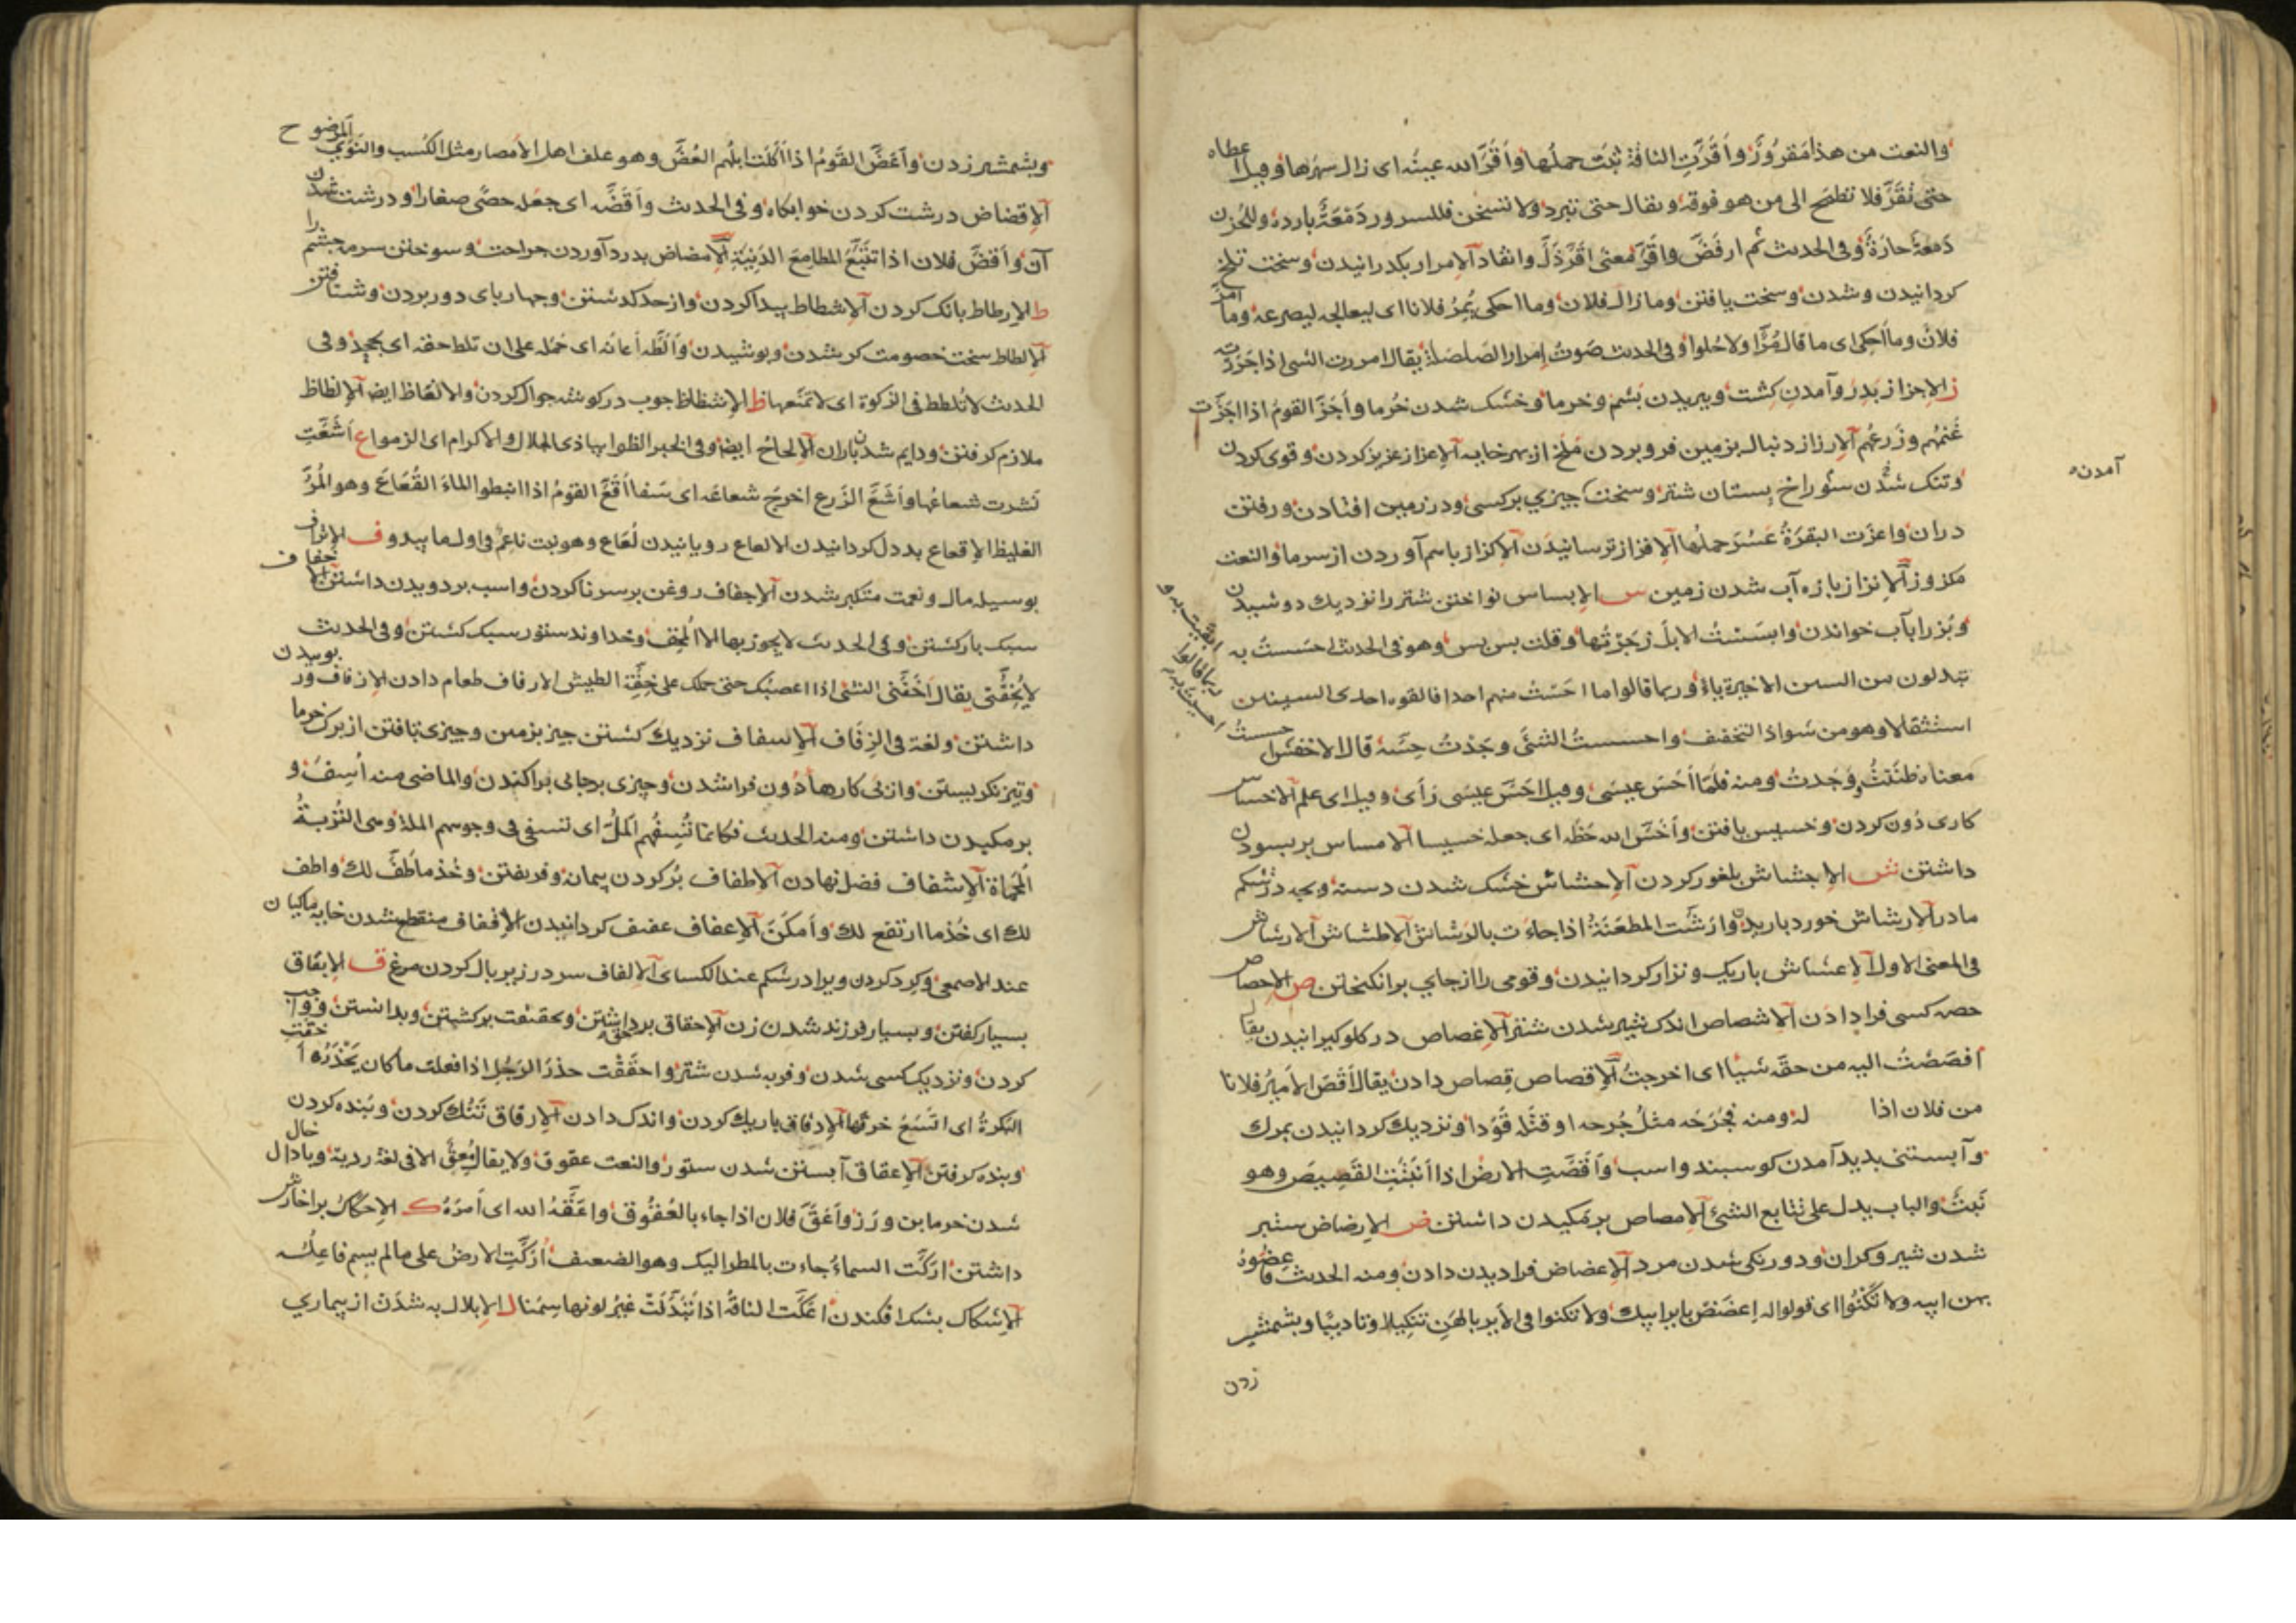 والنعت من هذا مقرور وأقرّت الناقة ثبت حملها وأقرّ الله عينه اى زال سهرها وقيل اعطاه
حتى تقرّ فلا تطمح الى من هو فوقه ويقال حتى تبرد ولا تسخن فللسرور دَمْعَةٌ باردة وللحُزن
دَمعَةٌ حارّةٌ وفى الحديث ثم ارفَضَّ واقَرَّ معنى اقرّ ذَلَّ وانقاد الإمرار بكذرانيدن وسخت تلخ
كردانيدن وشدن وسخت يافتن وما زال فلان وما احكى يُمِرّ فلانا اى ليعالجه ليصرعه وما امرّ
فلان وما أحلى اى ما قال مُرًّا ولا حُلوا وفى الحديث صَوتُ إمرار الصلصلة يقال امررت الشى اذا جررته
ز الإجزاز بدرو آمدن كِشت وببريدن پشم وخرما وخشك شدن خُرما وأجَزَّ القومُ اذا اجزّت
غنمُهم وزَرعُهم الإرزاز دنبال بزمين فرو بردن مَلَخ از بهر خايه الإعزاز عزيز كردن وقوى كردن
وتنك شدن سُوراخ پستان شتر وسخت چيزي بركسى ودر زمين افتادن ورفتن
آمدن
دران واعزّت البقرةُ عَسُرَ حملها الإفزاز ترسانيدن الإكزاز باسم آوردن از سرما والنعت
مكزوز الإنزاز بازه آب شدن زمين س الإبساس نواختن شتر را نزديك دوشيدن
وبُز را بآب خواندن وابسَسْتُ الابلَ زجَرْتُها وقلت بس بس وهو فى الحديث احسَستُ به
تبدلون من السين الاخيرة ياءً وربما قالوا ما احَسْتُ منهم احدا فالقوه احدى السينين
استثقالا وهو من شواذ التخفيف واحسستُ الشئَ وجَدْتُ حِسَّه قال الاخفش احسستُ
معناه ظننتُ ووَجَدتُ ومنه فلمّا أحَسَّ عيسَى وقيل احَسَّ عيسَى رَأى وقيل اى علم الاخساس
كارى دُون كردن وخسيس يافتن وأخَسَّ الله حَظَّه اى جعله خسيسا الامساس بربسودن
داشتن ش الإجشاش بلغور كردن الإحشاش خشك شدن دست وبچه در شكم
مادر الإرشاش خورد باريدن وارَشَّت الطعنةُ اذا جاءت بالرَشاش الاطشاش الارشاش
فى المعنى الاول الإعشاش باريك ونزار كردانيدن وقومى را از جاي برانكيختن ص الإحصاص
حصه كسى فرا دادن الاشصاص اندك شير شدن شتر الإغصاص در كلو كيرانيدن يقال
اقصَصْتُ اليه من حقّه شيئًا اى اخرجتُ الإقصاص قِصاص دادن يقال أقَصَّ الأميرُ فلانا
من فلان اذا له ومنه فجَرَحَه مثلُ جُرحه او قتَله قَوَدا ونزديك كردانيدن بمرك
وآبستنى بديد آمدن كوسبند واسب وأقصَّتِ الارضُ اذا أنبَتَتِ القَصِيصَ وهو
نَبتٌ والباب يدل على تتابع الشئ الإمصاص برمكيدن داشتن ض الإرضاض ستبر
شدن شير وكران ودورنكى شدن مرد الإعضاض فرا ديدن دادن ومنه الحديث فأعِضُّوهُ
بهن ابيه ولا تَكْنُوا اى قولوا له اعضَضْ باير ابيك ولا تكنوا فى الأير بالهَن تنكيلا وتاديبا وبشمشير
زدن
وبشمشير زدن وأعَضَّ القَومُ اذا أكَلَت ابلُهم العُضَّ وهو علف اهل الأمصار مثل الكُسب والنَوَى المرضوح
الإقضاض درشت كردن خوابكاه وفى الحديث وأقَضَّه اى جعَله حصًى صغارا ودرشت شدن
آن وأقضَّ فلان اذا تتَبَّعَ المطامعَ الدَنِيّة الإمضاض بدرد آوردن جراحت وسوختن سرمه چشم را
ط الإرطاط بانك كردن الإشطاط پيدا كردن واز حد كدشتن وچهارپاى دور بردن وشتافتن
الإلطاط سخت خصومت كر شدن وپوشيدن وألَطَّه أعانه اى حَمَله على ان تلط حقه اى يجحد وفى
الحديث لا تُلطط فى الزكوة اى لا تمنعها ظ الإشظاظ چوب در كوشه جوال كردن والانعاظ ايضا الإلظاظ
ملازم كرفتن ودايم شدن باران الإلحاح ايضا وفى الخبر الظوا بياذى الجلال والاكرام اى الزموا ع اشَعّتِ
نَشرت شعاعَها وأشَعَّ الزرع اخرجَ شعاعَه اى سَفا أقَعَّ القومُ اذا انبطوا الماءَ القُعَاعَ وهو المُرُّ
الغليظ الإقعاع بددل كردانيدن الالعاع رويانيدن لُعَاع وهو نبت ناعم فى اول ما يبدو ف الإتراف
بوسيله مال ونعمت متكبر شدن الإجفاف روغن بر سر ناكردن واسب بر دويدن داشتن الإخفاف
سبك بار كشتن وفى الحديث لا يجوز بها الا المُخِف وخداوند ستور سبك كشتن وفى الحديث
لا يُخِفَّنى يقال أخَفَّنى الشئُ اذا اغضبك حتى حملك على خِفّة الطيش الارفاف طعام دادن الإزفاف
داشتن ولغة فى الزِفَاف الإسفاف نزديك كشتن چيز بزمين وچيزى بتافتن از برك خرما
وتيز نكريستن واز پى كارها دُون فرا شدن وچيزى برجائى براكندن والماضى منه أُسِفَّ و
برمكيدن داشتن ومنه الحديث فكانما تُسِفُّهم المَلَّ اى تسفى فى وجوههم الملة وهى التُربةُ
المُحْماة الإشفاف فضل نهادن الإطفاف پُر كردن پيمانه وفريفتن وخُذ ما أطَفَّ لك واطف
لك اى خُذ ما ارتفع لك وأمكَنَ الإعفاف عفيف كردانيدن الإقفاف منقطع شدن خايه ماكيان
عند الاصمعى وكرد كردن ويرا در شكم عند الكساى الالفاف سر در زير بال كردن مرغ ق الإبقاق
بسيار كفتن وبسيار فرزند شدن زن الإحقاق برداشتن وحقيقت بركشيتن وبدانستن وواجب
كردن ونزديك كسى شدن وفربه شدن شتر واحقَقْت حذَرَ الرجُل اذا فعلت ما كان يَحْذَرُه
البَكرةُ اى اتَّسَعَ خرقُها الإدقاق باريك كردن واندك دادن الإرقاق تُنُك كردن وبنده كردن
وبنده كرفتن الإعقاق آبستن شدن ستور والنعت عقوق ولا يقال مُعِقٌّ الا فى لغة ردية وبادال خال
شدن خرما بن ورَز وأعَقَّ فلان اذا جاء بالعُقُوق واعَقَّهُ الله اى أمَرَّه ك الإحكاك برا خارش
داشتن ارَكَّت السماءُ جاءت بالمطر الركيك وهو الضعيف أُرِكَّتِ الارضُ على مالم يسم فاعِلُه
الإشكاك بشك افكندن اعَكَّت الناقةُ اذا تَبَدَّلَتْ غيرَ لونها سِمَنا ل الإبلال به شدَن از بيماري